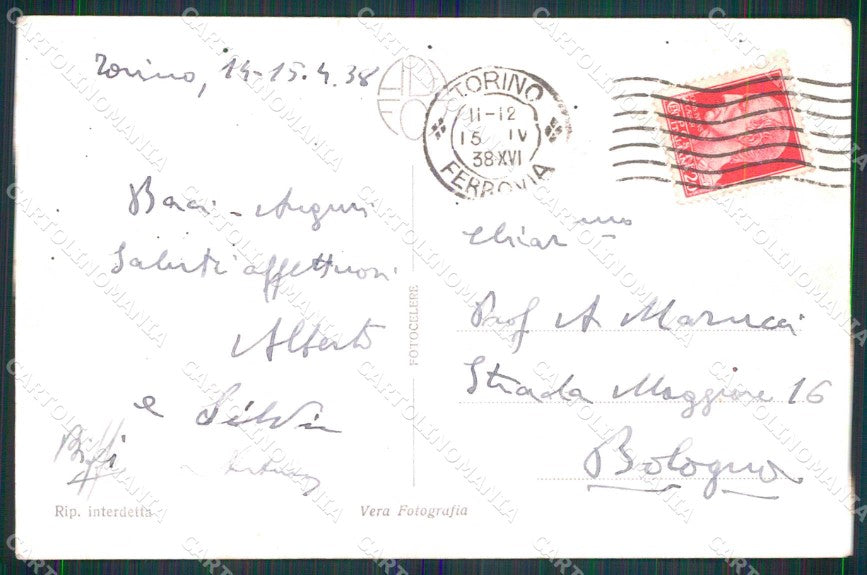 Torino, 14-15.4.38
TORINO
11-12
15 IV
38·XVI
FERROVIA
Baci - Auguri
Saluti affettuosi
Alberto
e Silvia
Biffi
Chiar mo
Prof A Marucci
Strada Maggiore 16
Bologna
FOTOCELERE
Rip. interdetta
Vera Fotografia
CARTOLINOMANIA